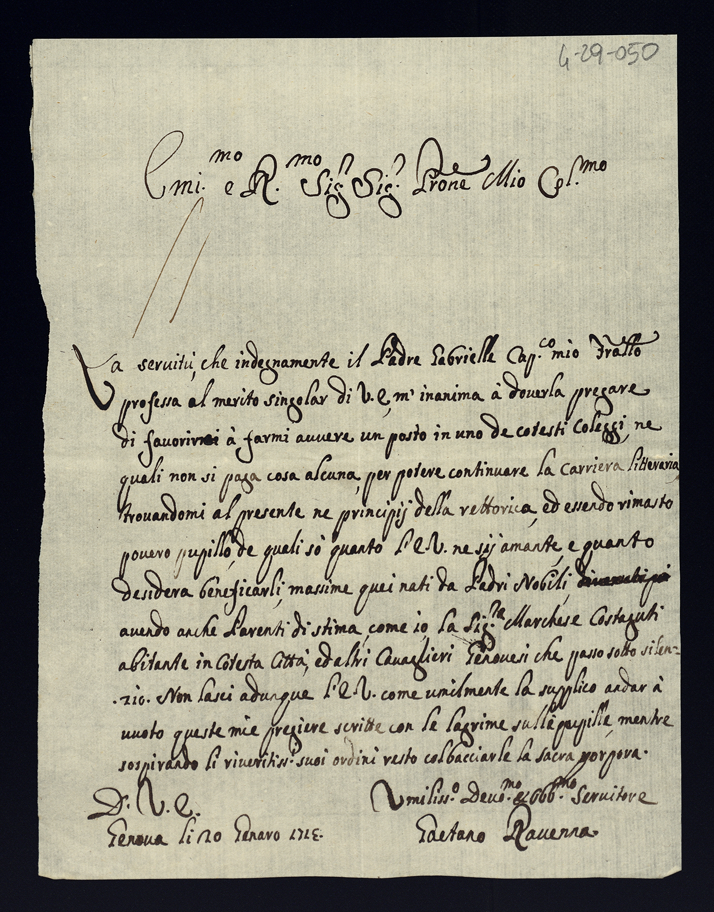 4-29-050
Emi.mo e R.mo Sig.r Sig.r Prone Mio Col.mo
La servitù, che indegnamente il Padre Gabrielle Cap.co mio Fratello
professa al merito singolar di V.E, m'inanima à doverla pregare
di favorirmi à farmi avvere un posto in uno de cotesti Coleggi, ne
quali non si paga cosa alcuna, per potere continuare la Carriera litteraria,
trovandomi al presente ne principij della rettorica, ed essendo rimasto
povero pupillo, de quali sò quanto l'E.V. ne sij amante, e quanto
desidera beneficarli, massime quei nati da Padri Nobili,
avendo anche Parenti di stima, come io, la Sig.ra Marchese Costaguti
abitante in Cotesta Città, ed altri Cavaglieri Genovesi che passo sotto silen=
zio. Non lasci adunque l'E.V. come umilmente la supplico andar à
vuoto queste mie pregiere scritte con le lagrime sulle pupille, mentre
sospirando li riveritiss.i suoi ordini resto col bacciarle la sacra porpora.
D. V. E. Umiliss.o Devo.mo & Obb.mo Servitore
Genova li 20 Genaro 171 Gaetano Ravenna